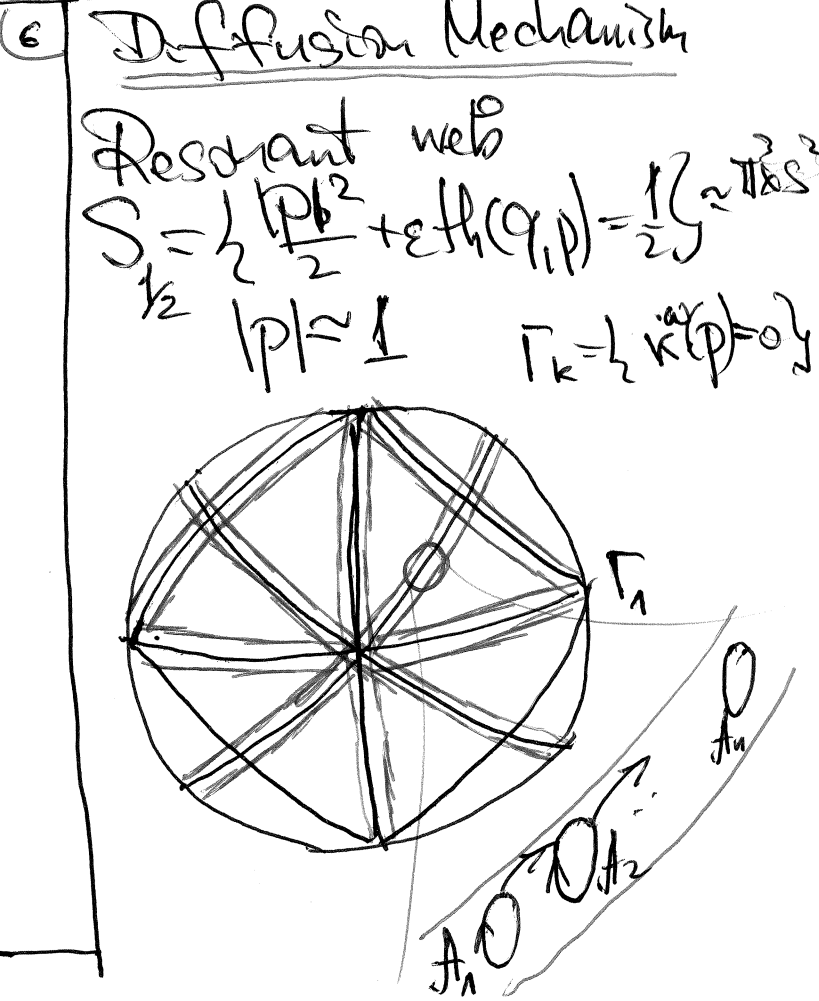 6
Diffusion Mechanism
Resonant web
S_{1/2} = { |p|²/2 + εH₁(q,p) = 1/2 } ≃ T³×S²
|p| ≃ 1 Γ_k = { k·ω(p) = 0 }
Γ₁
A₁
A₂
Aₙ